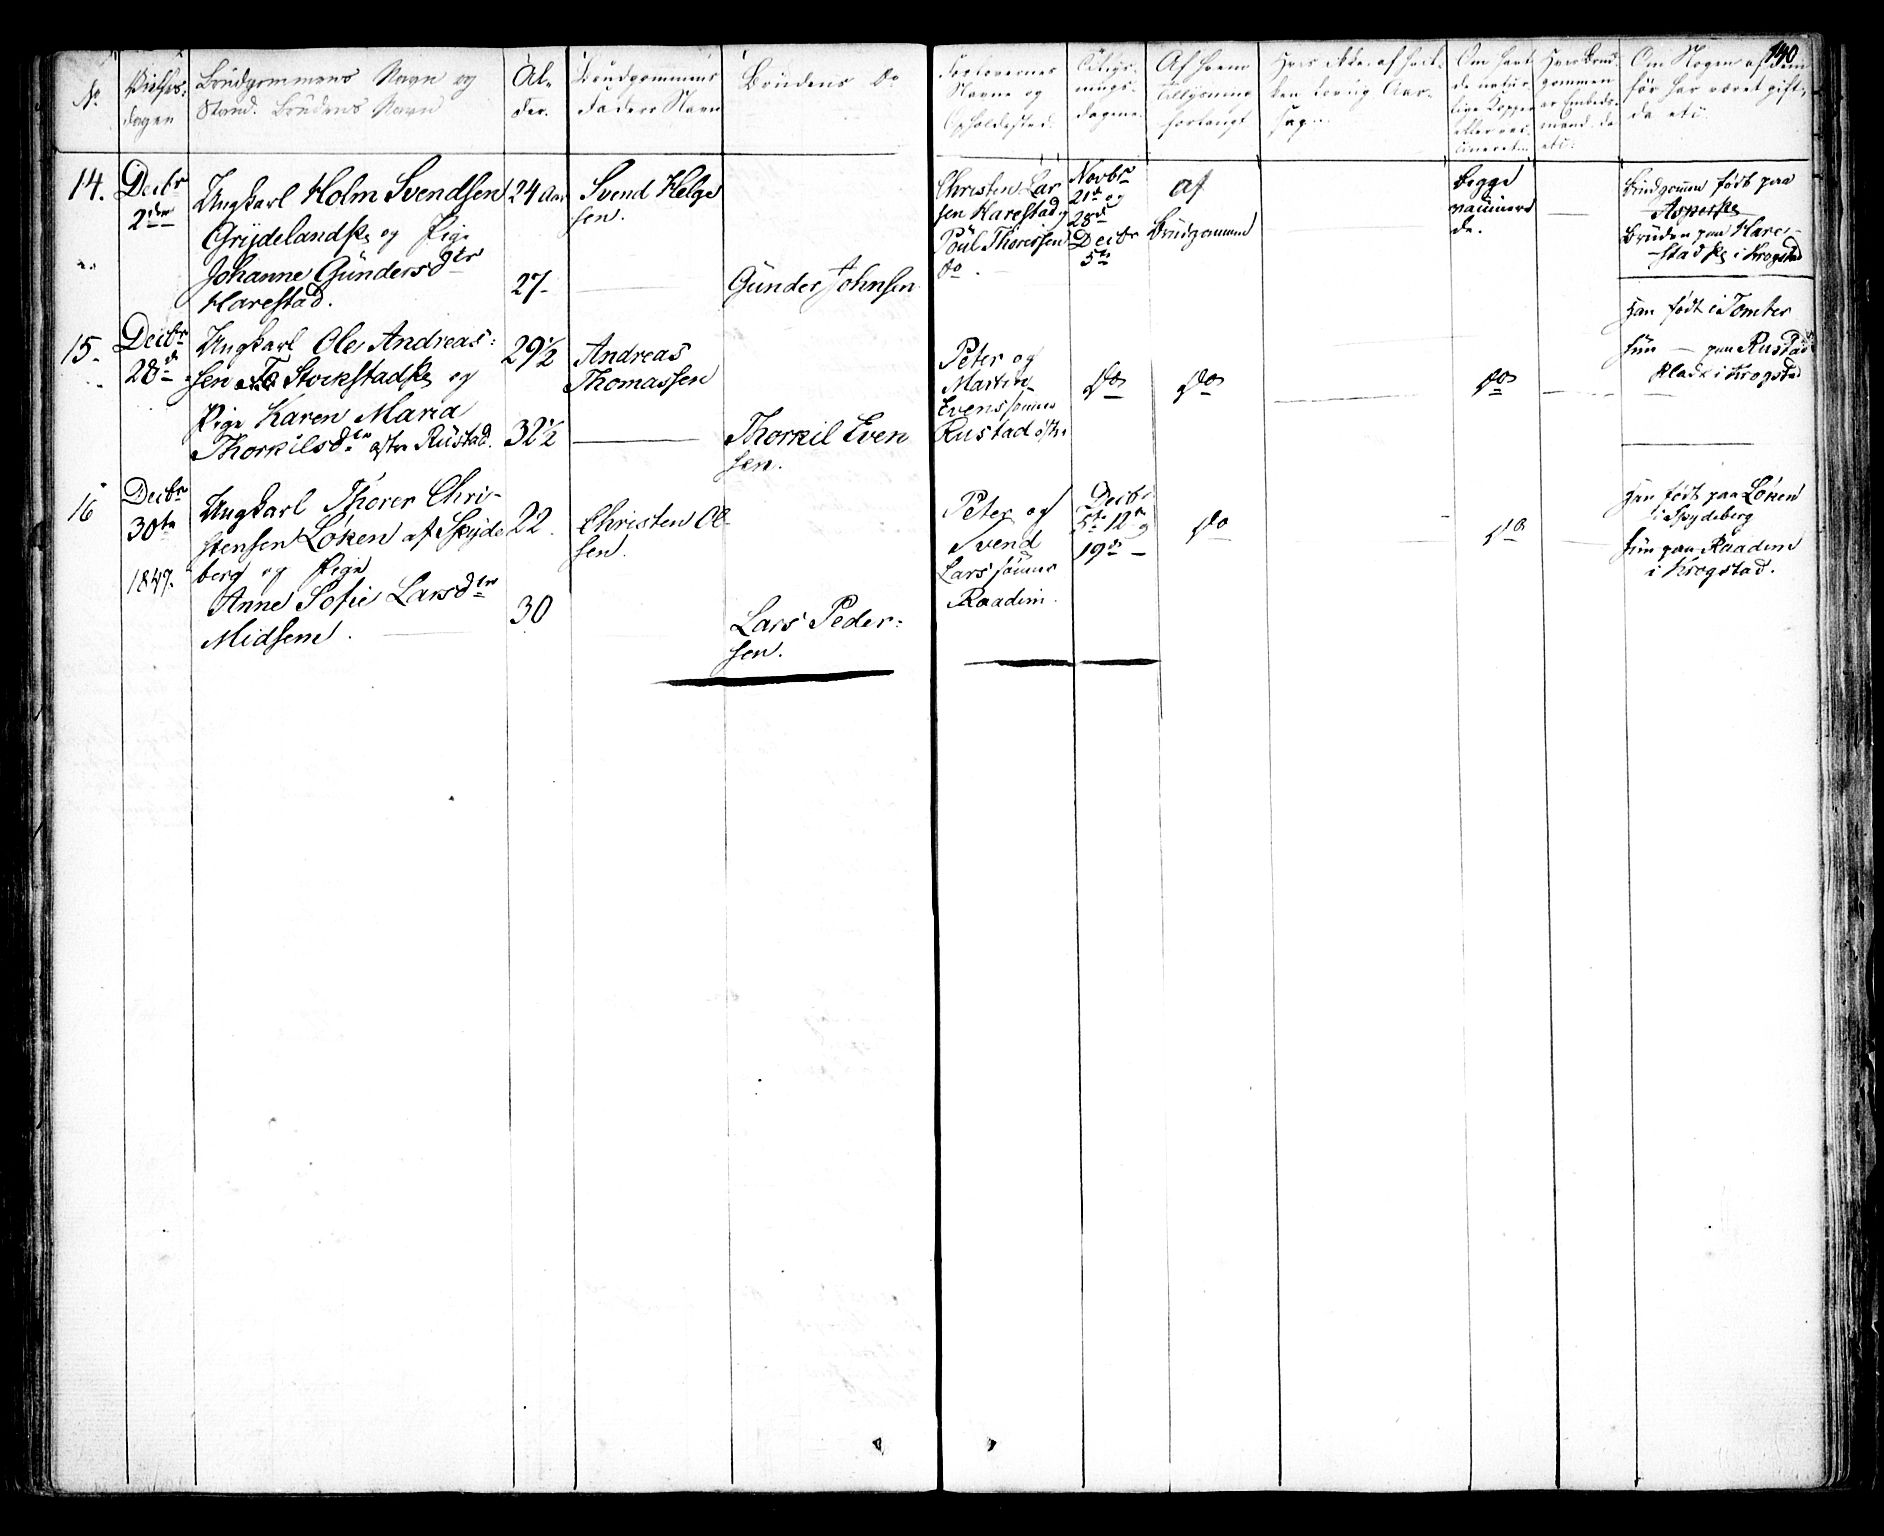 140.
No
Vielses-
dagen
Brudgommens Navn og
Stand. Brudens Navn
Al-
der.
Brudgommens
Faders Navn
Brudens Do
Forlovernes
Navne og
Opholdssted.
Tillys-
nings-
dagene
Af hvem
Tillysning
forlangt
Om havt
de natur-
lige Kopper
eller vac-
cineret
Hvis Brud-
gommen
er Embeds-
mand. da
etc.
Om Nogen af dem
før har været gift,
da etc.
14.
Decbr
2den
Ungkarl Holm Svendsen
Grydeland og Pige
Johanne Gundersdtr
Harestad.
24 Aar
27
Svend Helge
sen.
Gunder Johnsen
Christen Lar
sen Harestad og
Poul Thoressen
do
Novbr
21de og
28de
Decbr
5te
af
Brudgommen
Begge
vaccinere
de.
Brudgommen født paa
Asper
Bruden paa Hare-
stad i Krogstad
15.
Decbr
28de
Ungkarl Ole Andreas-
sen Stockstad og
Pige Karen Maria
Thorkilsdtr østre Rustad.
29½
32½
Andreas
Thomassen
Thorkil Even
sen.
Peter og
Martin
Evenssønner
Rustad østre
Do
Do
Do
Han født i Tomter
Hun — paa Rustad
i Krogstad
16
Decbr
30te
1847.
Ungkarl Thorer Chri-
stensen Løken af Spyde
berg og Pige
Anne Sofie Larsdtr
Midsem.
22
30
Christen Ol-
sen.
Lars Peder-
sen.
Peter og
Svend
Larssønner
Raadim.
Decbr
5te 12te og
19de
Do
Do
Han født paa Løken
i Spydeberg
Hun paa Raadim
i Krogstad.